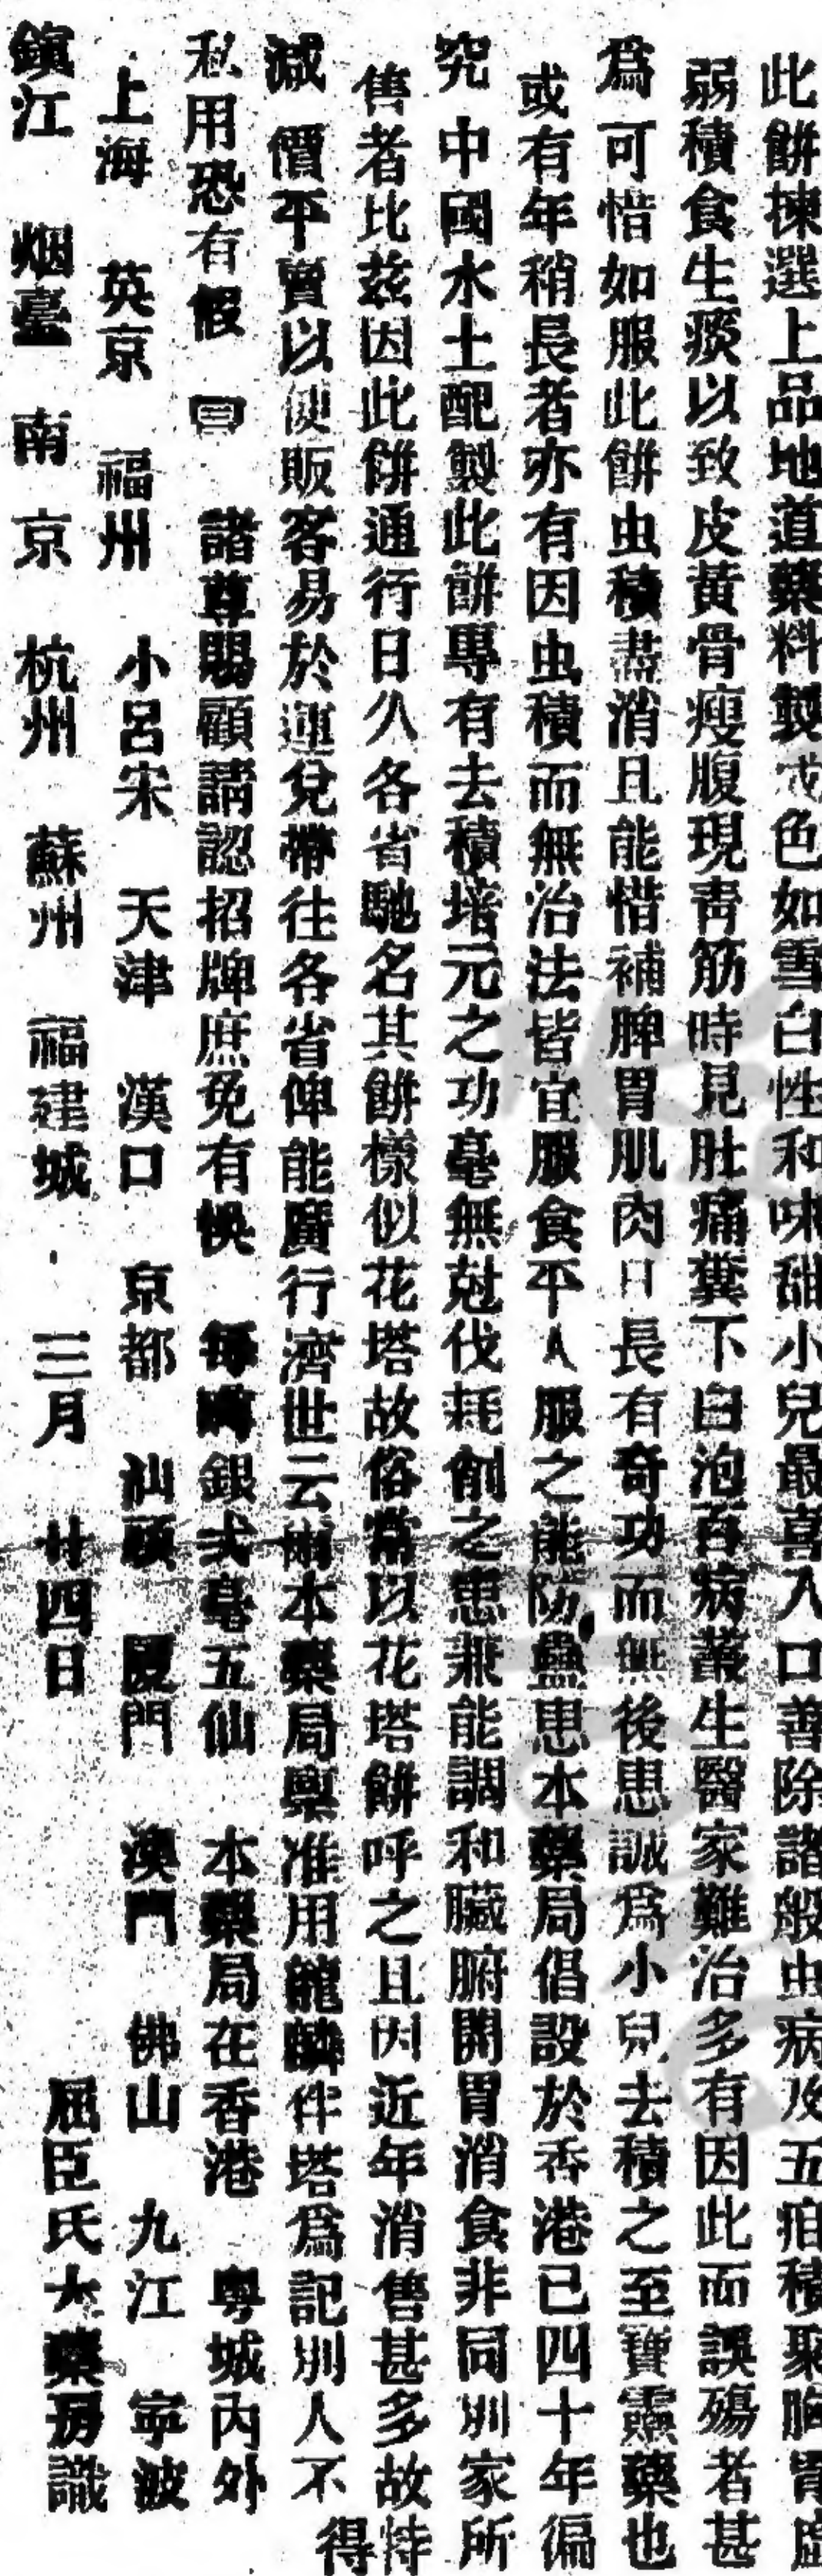 此餅揀選上品地道藥料製成色如雪白性和味甜小兒最喜入口善除諸般虫病及五疳積聚胸胃虛
弱積食生痰以致皮黃骨瘦腹現靑筋時見肚痛糞下白泡百病叢生醫家難治多有因此而誤殤者甚
爲可惜如服此餅虫積盡消且能惜補脾胃肌肉日長有奇功而無後患誠爲小兒去積之至寶靈藥也
或有年稍長者亦有因虫積而無治法皆宜服食平人服之能防蠱患本藥局倡設於香港已四十年徧
究中國水土配製此餅專有去積培元之功毫無尅伐耗削之患兼能調和臟腑開胃消食非同別家所
售者比茲因此餅通行日久各省馳名其餅樣似花塔故俗常以花塔餅呼之且因近年消售甚多故特
減價平賣以便販客易於運兌帶往各省俾能廣行濟世云爾本藥局稟准用龍麟伴塔爲記別人不得
私用恐有假冒 諸尊賜顧請認招牌庶免有悞 每樽銀弍毫五仙 本藥局在香港 粤城內外
上海 英京 福州 小呂宋 天津 漢口 京都 汕頭 厦門 澳門 佛山 九江 寧波
鎮江 烟臺 南京 杭州 蘇州 福建城 三月 廿四日 屈臣氏大藥房識